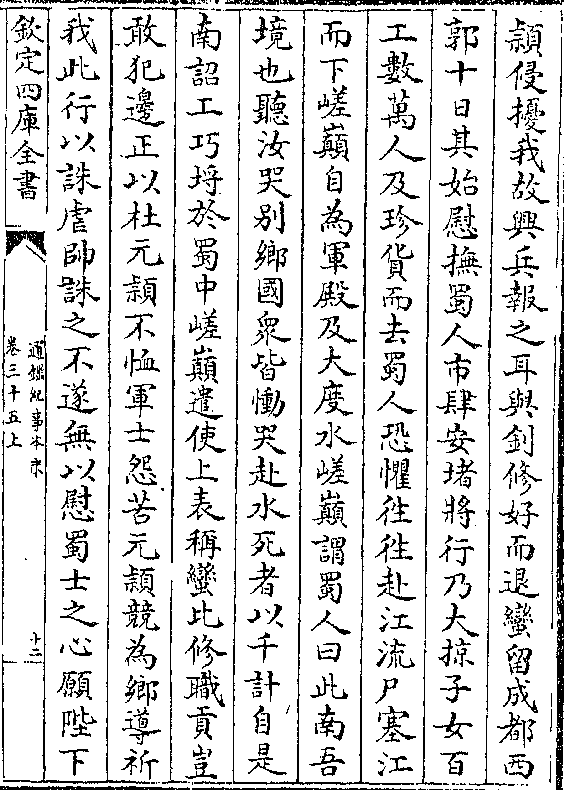 頴侵擾我故興兵報之耳與釗修好而退蠻留成都西
郭十日其始慰撫蜀人市肆安堵將行乃大掠子女百
工數萬人及珍貨而去蜀人恐懼徃徃赴江流尸塞江
而下嵯巔自為軍殿及大度水嵯巔謂蜀人曰此南吾
境也聽汝哭别鄉國衆皆慟哭赴水死者以千計自是
南詔工巧埒於蜀中嵯巔遣使上表稱蠻比修職貢豈
敢犯邊正以杜元頴不恤軍士怨苦元頴競為鄉導祈
我此行以誅虐帥誅之不遂無以慰蜀士之心願陛下
欽定四庫全書
通鑑紀事本末
卷三十五上
十二